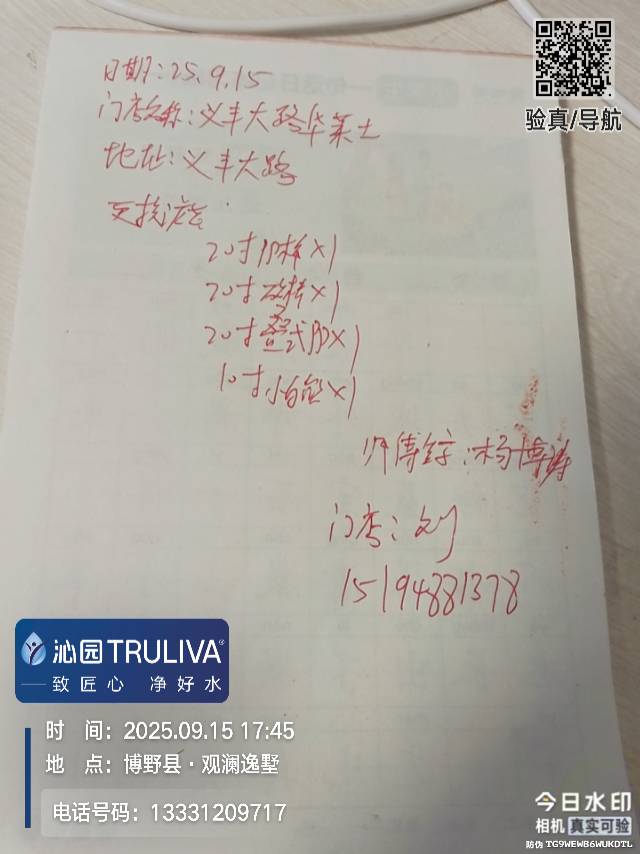 验真/导航
日期:25.9.15
门店名称:义丰大路华莱士
地址:义丰大路
更换滤芯:
20寸PP棉×1
20寸碳棒×1
20寸叠式PP×1
10寸小白鲸×1
师傅签字:杨博涛
门店:刘
15194881378
沁园TRULIVA®
致匠心 净好水
时 间:2025.09.15 17:45
地 点:博野县·观澜逸墅
电话号码:13331209717
今日水印
相机 真实可验
防伪 TG9WEWB6WUKDTL